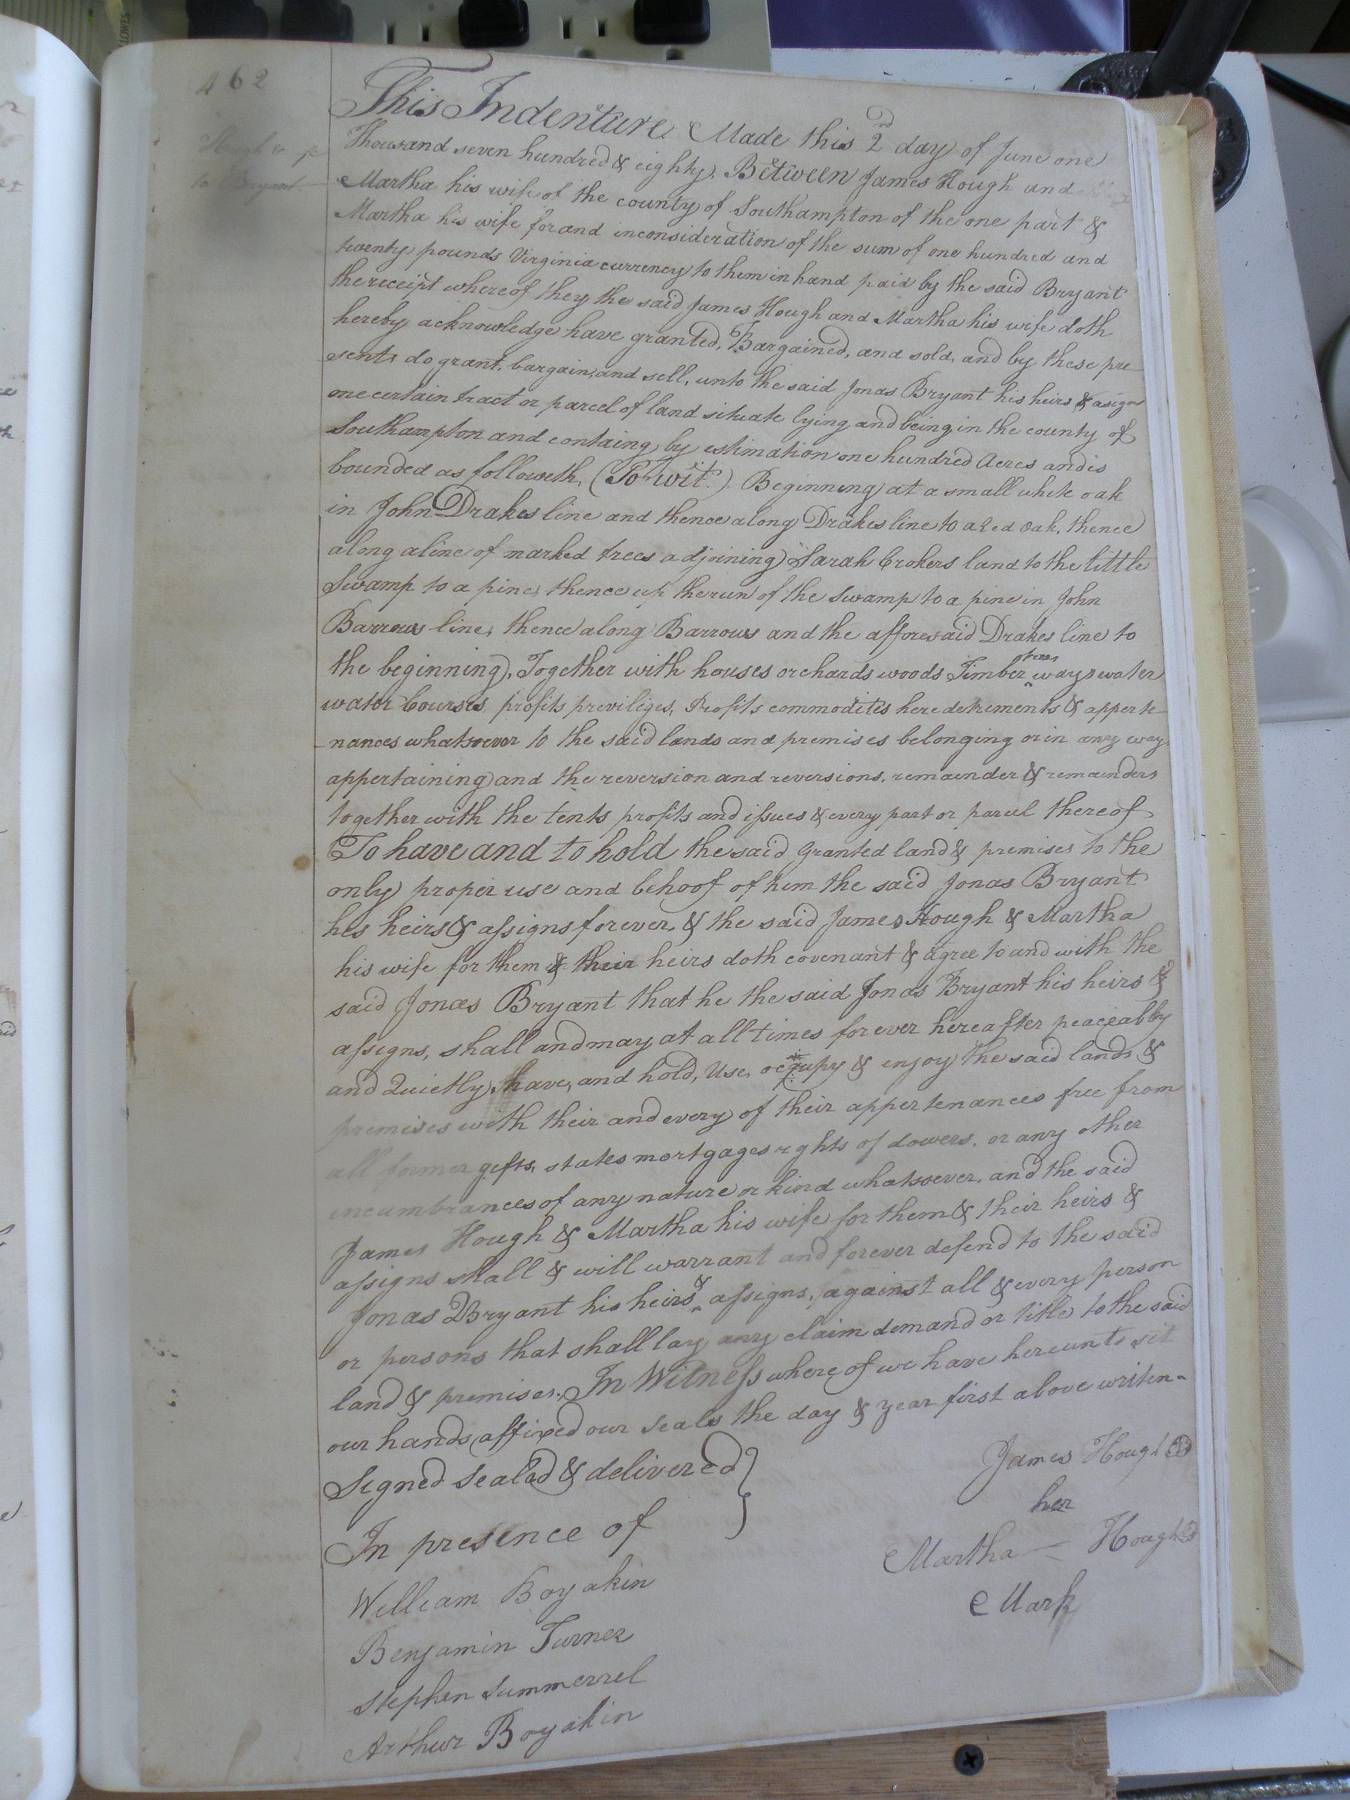 462
Hough &
to Bryant
This Indenture Made this 2d day of June one
Thousand seven hundred & eighty Between James Hough and
Martha his wife of the county of Southampton of the one part &
Martha his wife for and inconsideration of the sum of one hundred and
twenty pounds Virginia currency to them in hand paid by the said Bryant
the receipt whereof they the said James Hough and Martha his wife doth
hereby acknowledge have granted, Bargained, and sold, and by these pre
sents do grant, bargain, and sell, unto the said Jonas Bryant his heirs & asigns
one certain tract or parcel of land situate lying and being in the county of
Southampton and containg by estimation one hundred Acres and is
bounded as followeth, (To wit.) Beginning at a small white oak
in John Drakes line and thence along Drakes line to a Red oak, thence
along a line of marked trees adjoining Sarah Crokers land to the little
Swamp to a pine, thence up the run of the swamp to a pine in John
Barrows line, thence along Barrows and the afforesaid Drakes line to
the beginning, Together with houses orchards woods Timber trees ways water
water Courses, profits previliges, Profits commodites heredetements & apperte
nances whatsoever to the said lands and premises belonging or in any way
appertaining and the reversion and reversions, remainder & remainders
together with the tents profits and issues & every part or parcel thereof
To have and to hold the said Granted land & premises to the
only proper use and behoof of him the said Jonas Bryant
his heirs & assigns forever, & the said James Hough & Martha
his wife for them & their heirs doth covenant & agree to and with the
said Jonas Bryant that he the said Jonas Bryant his heirs &
assigns, shall and may at all times forever hereafter peaceabby
and Quietly, have, and hold, Use, occupy & enjoy the said lands &
premises with their and every of their appertenances free from
all former gifts, states mortgages rights of dowers, or any other
incumbrances of any nature or kind whatsoever, and the said
James Hough & Martha his wife for them & their heirs &
assigns shall & will warrant and forever defend to the said
Jonas Bryant his heirs & assigns, against all & every person
or persons that shall lay any claim demand or title to the said
land & premises, In Witness where of we have hereunto set
our hands affixed our seals the day & year first above writen
Signed sealed & delivered James Hough
In presence of her
William Boyakin Martha Hough
Benjamin Turner Mark
Stephen Summerrel
Arthur Boyakin